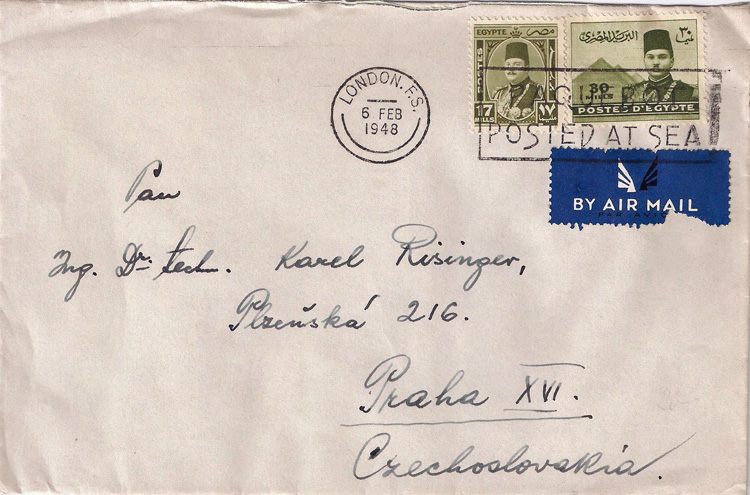 LONDON. F.S.
6 FEB
1948
EGYPTE مصر
POSTES
17 ١٧
MILLS
البريد المصرى ٣٠
30
MILLS
POSTES D'EGYPTE
PAQUEBOT
POSTED AT SEA
BY AIR MAIL
PAR AVION
Pan
Ing. Dr. techn. Karel Risinger,
Plzeňská 216.
Praha XVI.
Czechoslovakia.